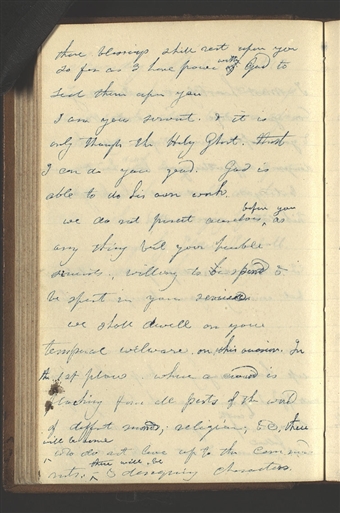 these blessings shall rest upon you
so far as I have power with of God to
seal them upon you
I am your servant. & it is
only through the Holy Ghost. that
I can do you good. God is
able to do his own work
we do not present ourselves before you as
any thing but your humble
servants, willing to be spend &
be spent in your services
we shall dwell on your
temporal welware on this occasion. In
the 1st place where a crowd is
flocking from all parts of the world
of different minds, religions, &c, there
will be some who do not live up to the commend
ments. there will be & designing characters